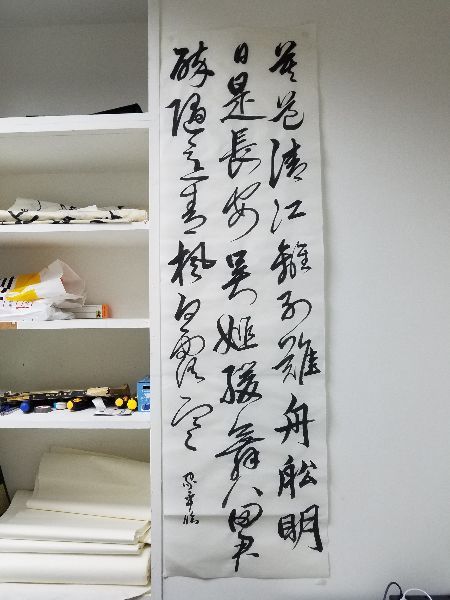 莫道清江離別難舟舩明
日是長安吳姬緩舞留君
醉隨意青楓白露寒